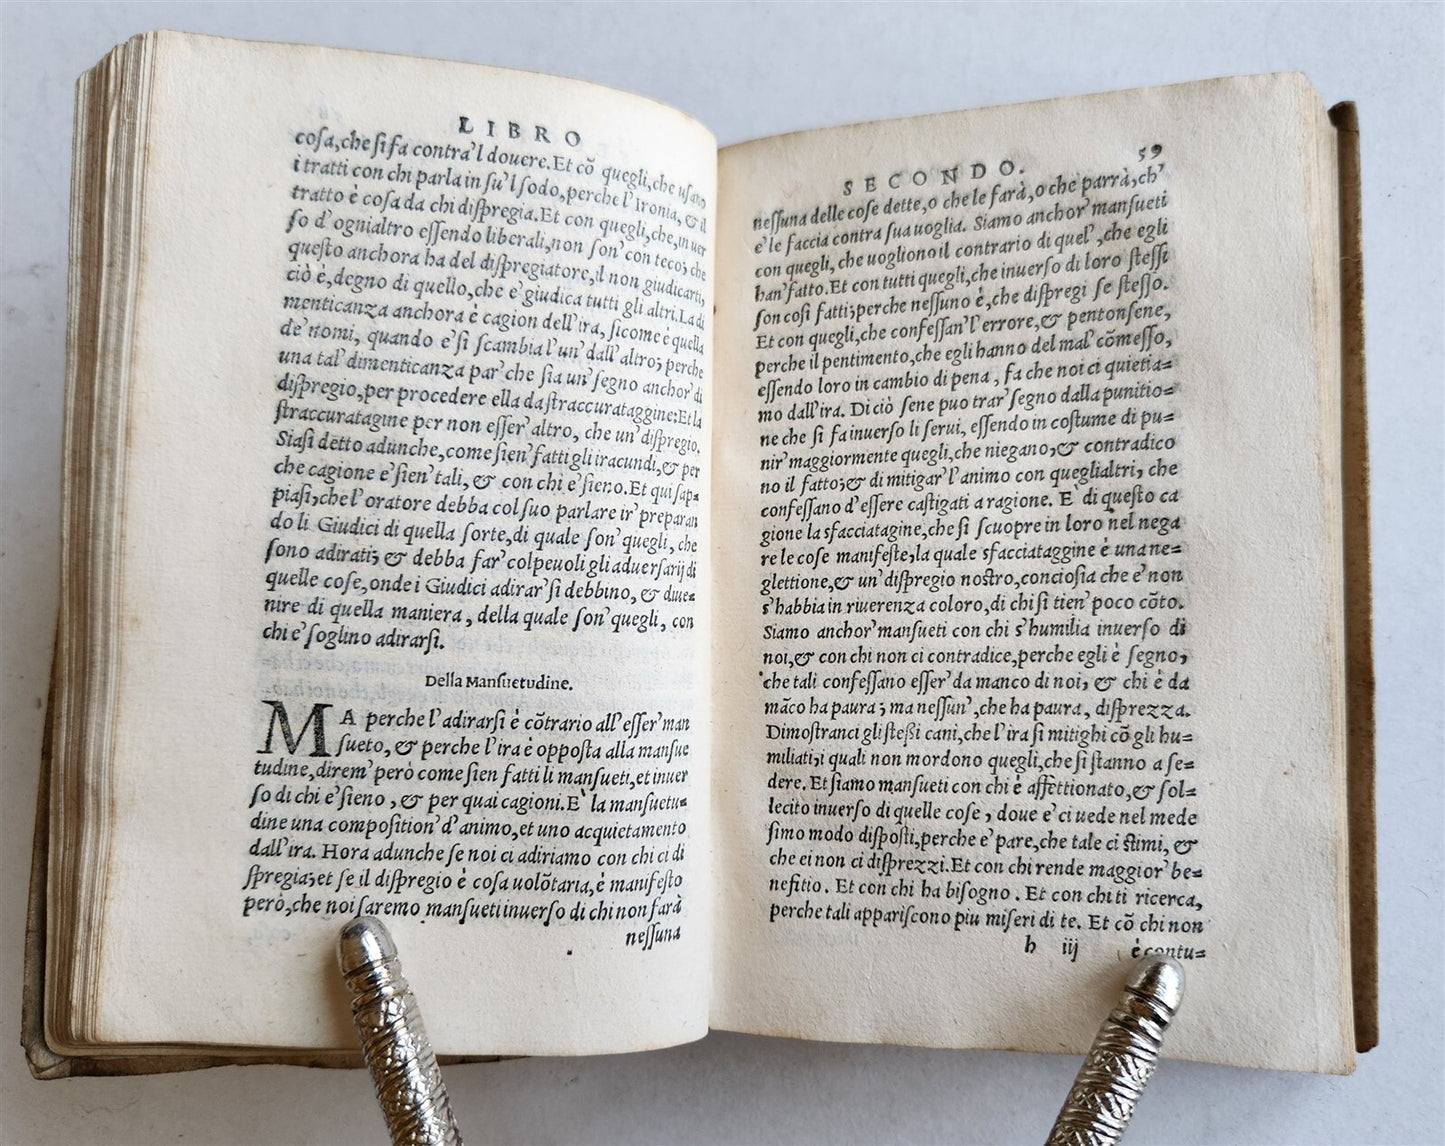 LIBRO
cosa,che si fa contra'l douere.Et cõ quegli,che usano
i tratti con chi parla in su'l sodo,perche l'Ironia, & il
tratto è cosa da chi dispregia.Et con quegli,che,in uer
so d'ognialtro essendo liberali,non son'con teco; che
questo anchora ha del dispregiatore,il non giudicarti,
ciò è,degno di quello,che e'giudica tutti gli altri.La di
menticanza anchora è cagion dell'ira, sicome è quella
de'nomi, quando e'si scambia l'un'dall'altro; perche
una tal'dimenticanza par'che sia un'segno anchor'di
dispregio,per procedere ella da straccurataggine:Et la
straccuratagine per non esser'altro, che un'dispregio.
Siasi detto adunche,come sien'fatti gli iracundi,& per
che cagione e'sien'tali, & con chi e'sieno.Et qui sap=
piasi,che l'oratore debba col suo parlare ir'preparan
do li Giudici di quella sorte,di quale son'quegli, che
sono adirati; & debba far'colpeuoli gli aduersarij di
quelle cose,onde i Giudici adirar'si debbino, & diue=
nire di quella maniera, della quale son'quegli, con
chi e'soglino adirarsi.
Della Mansuetudine.
MA perche l'adirarsi è cõtrario all'esser'man
sueto, & perche l'ira è opposta alla mansue
tudine,direm'però come sien fatti li mansueti,et inuer
so di chi e'sieno , & per quai cagioni.E' la mansuetu=
dine una composition'd'animo,et uno acquietamento
dall'ira. Hora adunche se noi ci adiriamo con chi ci di
spregia;et se il dispregio è cosa uolõtaria,è manifesto
però,che noi saremo mansueti inuerso di chi non farà
nessuna
SECONDO. 59
nessuna delle cose dette,o che le farà,o che parrà,ch'
e'le faccia contra sua uoglia. Siamo anchor'mansueti
con quegli, che uogliono il contrario di quel',che egli
han'fatto.Et con tutti quegli,che inuerso di loro stessi
son così fatti;perche nessuno è,che dispregi se stesso.
Et con quegli,che confessan'l'errore,& pentonsene,
perche il pentimento,che egli hanno del mal'cõmesso,
essendo loro in cambio di pena , fa che noi ci quietia=
mo dall'ira. Di ciò sene puo trar'segno dalla punitio=
ne che si fa inuerso li serui, essendo in costume di pu=
nir'maggiormente quegli,che niegano,& contradico
no il fatto;& di mitigar'l'animo con queglialtri, che
confessano d'essere castigati a ragione. E' di questo ca
gione la sfacciatagine,che si scuopre in loro nel nega
re le cose manifeste,la quale sfacciataggine è una ne=
glettione,& un'dispregio nostro,conciosia che e'non
s'habbia in riuerenza coloro,di chi si tien'poco cõto.
Siamo anchor'mansueti con chi s'humilia inuerso di
noi,& con chi non ci contradice,perche egli è segno,
che tali confessano esser'da manco di noi, & chi è da
mãco ha paura ; ma nessun',che ha paura , disprezza.
Dimostranci gli stessi cani,che l'ira si mitighi cõ gli hu=
miliati,i quali non mordono quegli,che si stanno a se=
dere. Et siamo mansueti con chi è affettionato,& sol=
lecito inuerso di quelle cose , doue e'ci uede nel mede
simo modo disposti,perche e'pare,che tale ci stimi, &
che ei non ci disprezzi.Et con chi rende maggior'be=
nefitio. Et con chi ha bisogno . Et con chi ti ricerca,
perche tali appariscono piu miseri di te. Et cõ chi non
h iij è contu=